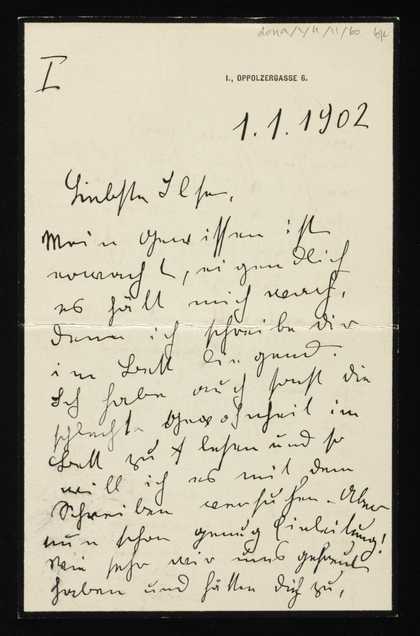 I
I., OPPOLZERGASSE 6.
1.1.1902
Liebste Ilse,
Mein Gewissen ist
erwacht, eigendlich
es hält mich wach,
denn ich schreibe dir
im Bett liegend.
Ich habe auch sonst die
schlechte Gewohnheit im
Bett zu lesen und so
will ich es mit dem
Schreiben versuchen. Aber
nun schon genug Einleitung!
Wie sehr wir uns gefreut
haben und hätten dich zu,